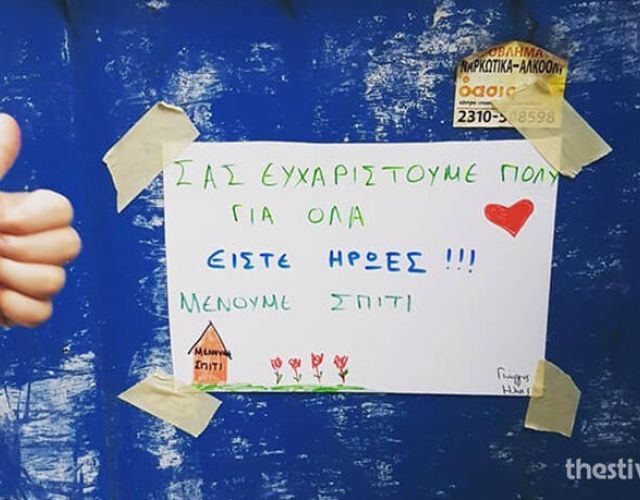 ΟΒΛΗΜΑ
ΝΑΡΚΩΤΙΚΑ-ΑΛΚΟΟΛ
όασι
2310-508598
ΣΑΣ ΕΥΧΑΡΙΣΤΟΥΜΕ ΠΟΛΥ
ΓΙΑ ΟΛΑ
ΕΙΣΤΕ ΗΡΩΕΣ !!!
ΜΕΝΟΥΜΕ ΣΠΙΤΙ
ΜΕΝΟΥΜΕ
ΣΠΙΤΙ
Γιώργης
thestiv